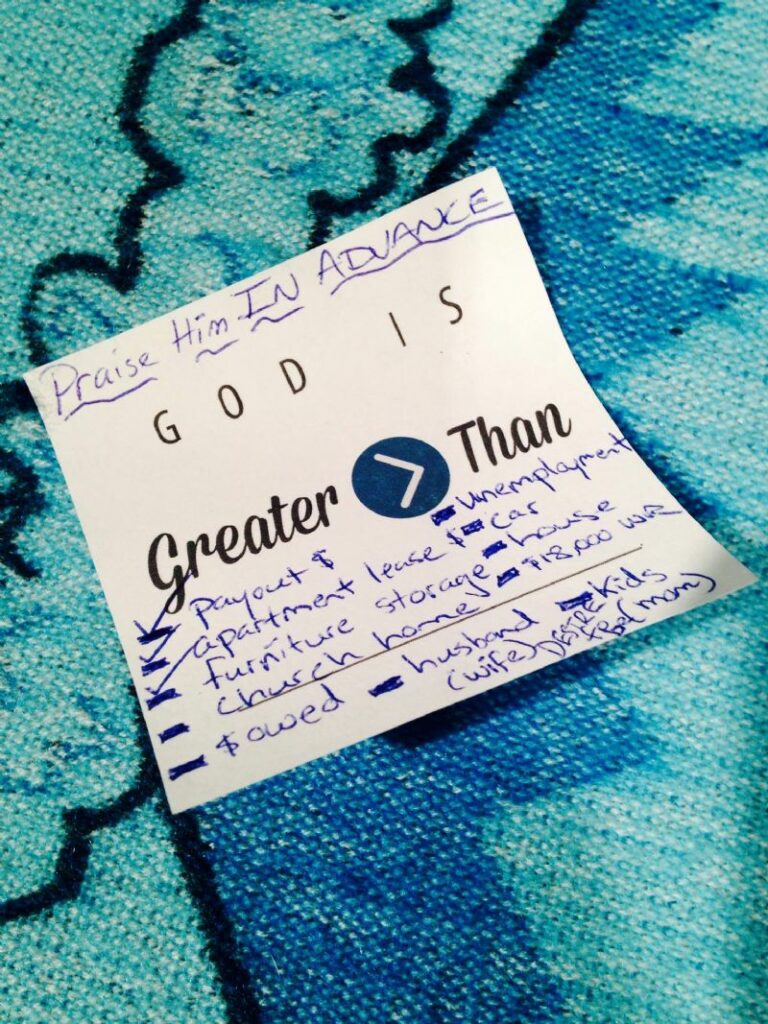 Praise Him IN ADVANCE
GOD IS
Greater > Than
payout $ - unemployment
apartment lease $ - car
furniture storage - house
church home - $18,000
$ owed - husband - kids
(wife) DESIRE (mom)